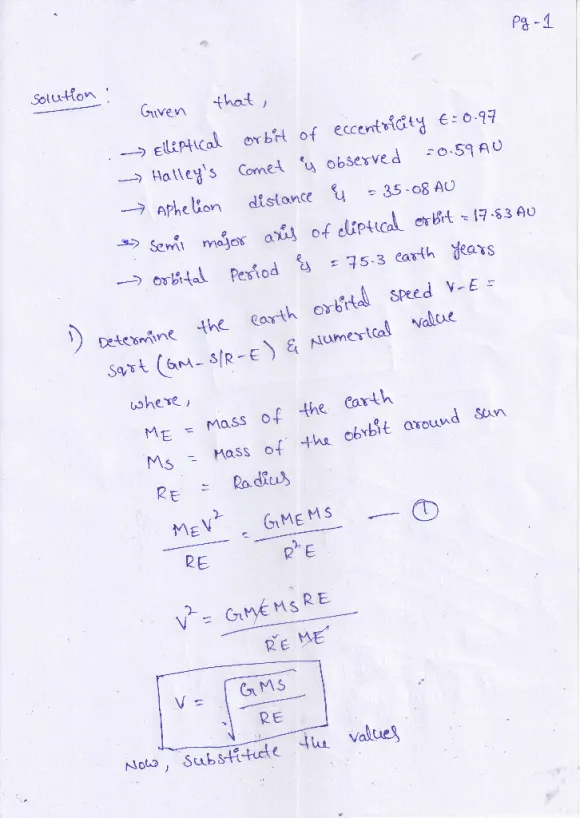 Pg-1
Solution:
Given that,
→ Elliptical orbit of eccentricity ϵ=0.97
→ Halley's Comet is observed =0.59 AU
→ Aphelion distance is = 35.08 AU
→ Semi major axis of eliptical orbit = 17.83 AU
→ orbital Period is = 75.3 earth years
1) Determine the earth orbital speed V-E =
sqrt (GM-S/R-E) & Numerical value
where,
ME = Mass of the earth
MS = Mass of the obrbit around sun
RE = Radius
MEV²/RE = GMEMS/R²E — ①
V² = GMEMSRE/R²E ME
V = √(GMS/RE)
Now, Substitute the values